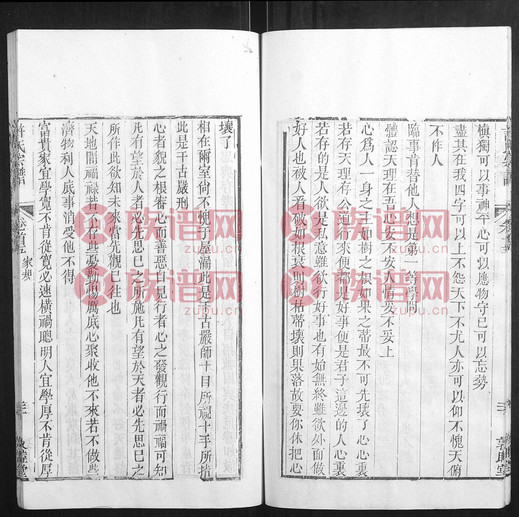 慎獨可以事神平心可以應物守己可以忘勢
盡其在我四字可以上不怨天下不尤人亦可以仰不愧天俯
不怍人
臨事肯替他人想是第一等學問
體認天理存在吾心安不安妥不妥上
心爲人一身之主如樹之根如果之蒂最不可先壞了心心裏
若存天理存公道行來便都是好事便是君子這邊的人心裏
若存的是人欲是私意雖欲行好事也有始無終雖欲外面做
好人也被人看破如根衰則樹枯蒂壞則果落故要你休把心
壞了
相在爾室尙不愧于屋漏此是千古嚴師十目所視十手所指
此是千古嚴刑
心者貌之根審心而善惡自見行者心之發觀行而禍福可知
凡有望於人者必先思己之所施凡有望於天者必先思己之
所作此欲知未來當先觀已往也
天地間福祿若不存些憂勤惕厲底心聚收他不來若不做些
濟物利人底事消受他不得
富貴家宜學寬不肯從寬必速橫禍聰明人宜學厚不肯從厚
許氏宗譜
家規
敦睦堂
族谱网
zupu.cn